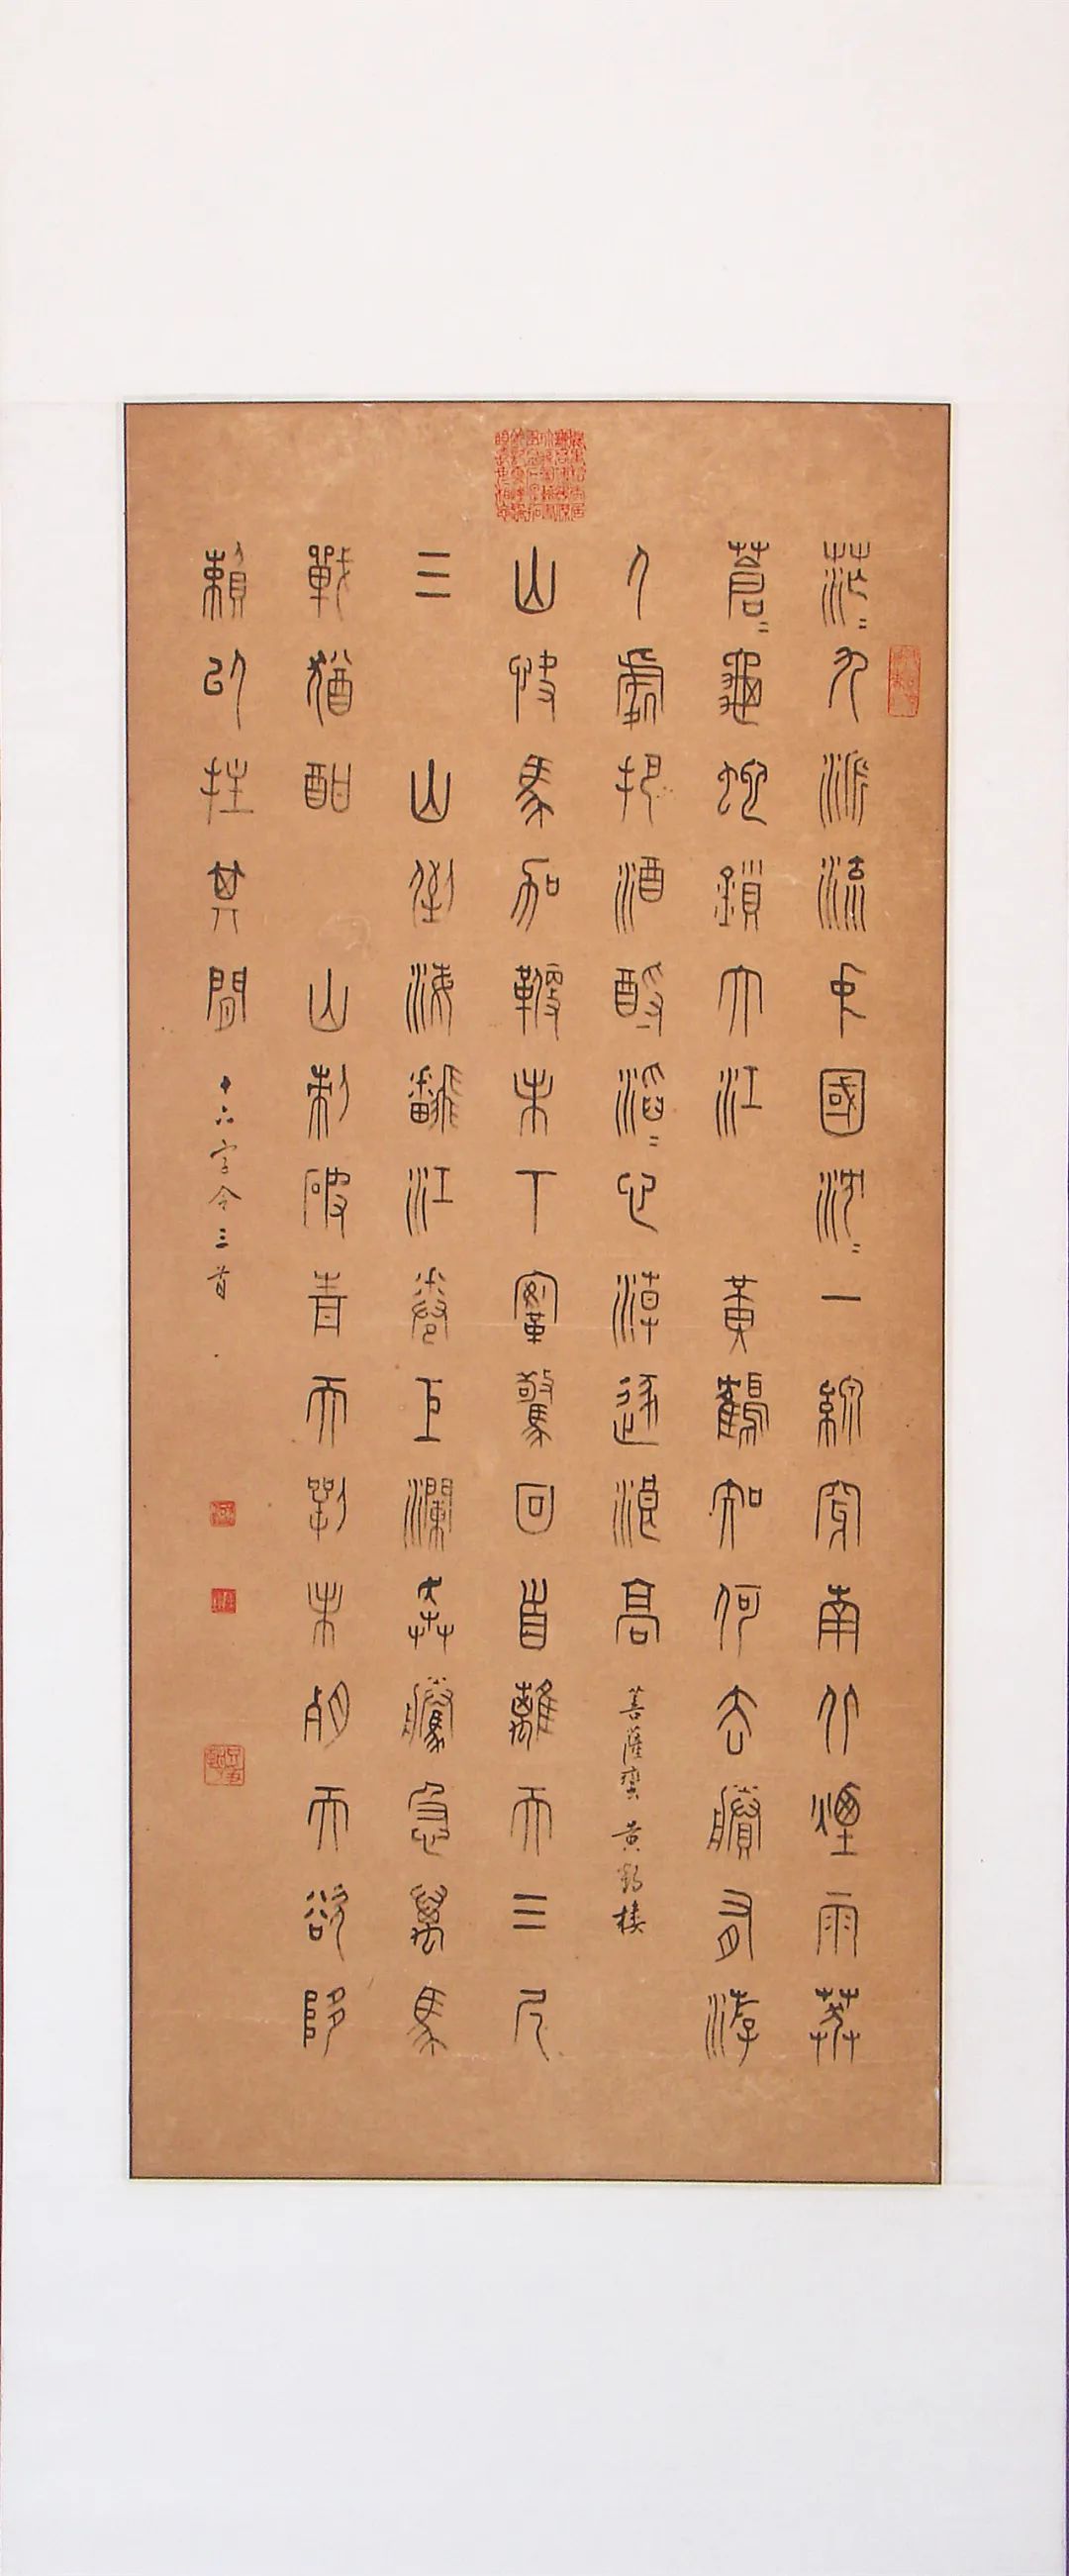 茫〻九派流中國沈〻一線穿南北煙雨莽
蒼〻龜蛇鎖大江 黃鶴知何去賸有游
人處把酒酹滔〻心潮逐浪高 菩薩蠻 黃鶴樓
山快馬加鞭未下鞌驚回首離天三尺
三 山倒海翻江卷巨瀾奔騰急萬馬
戰猶酣 山刺破青天鍔未殘天欲墮
賴以拄其間 十六字令三首